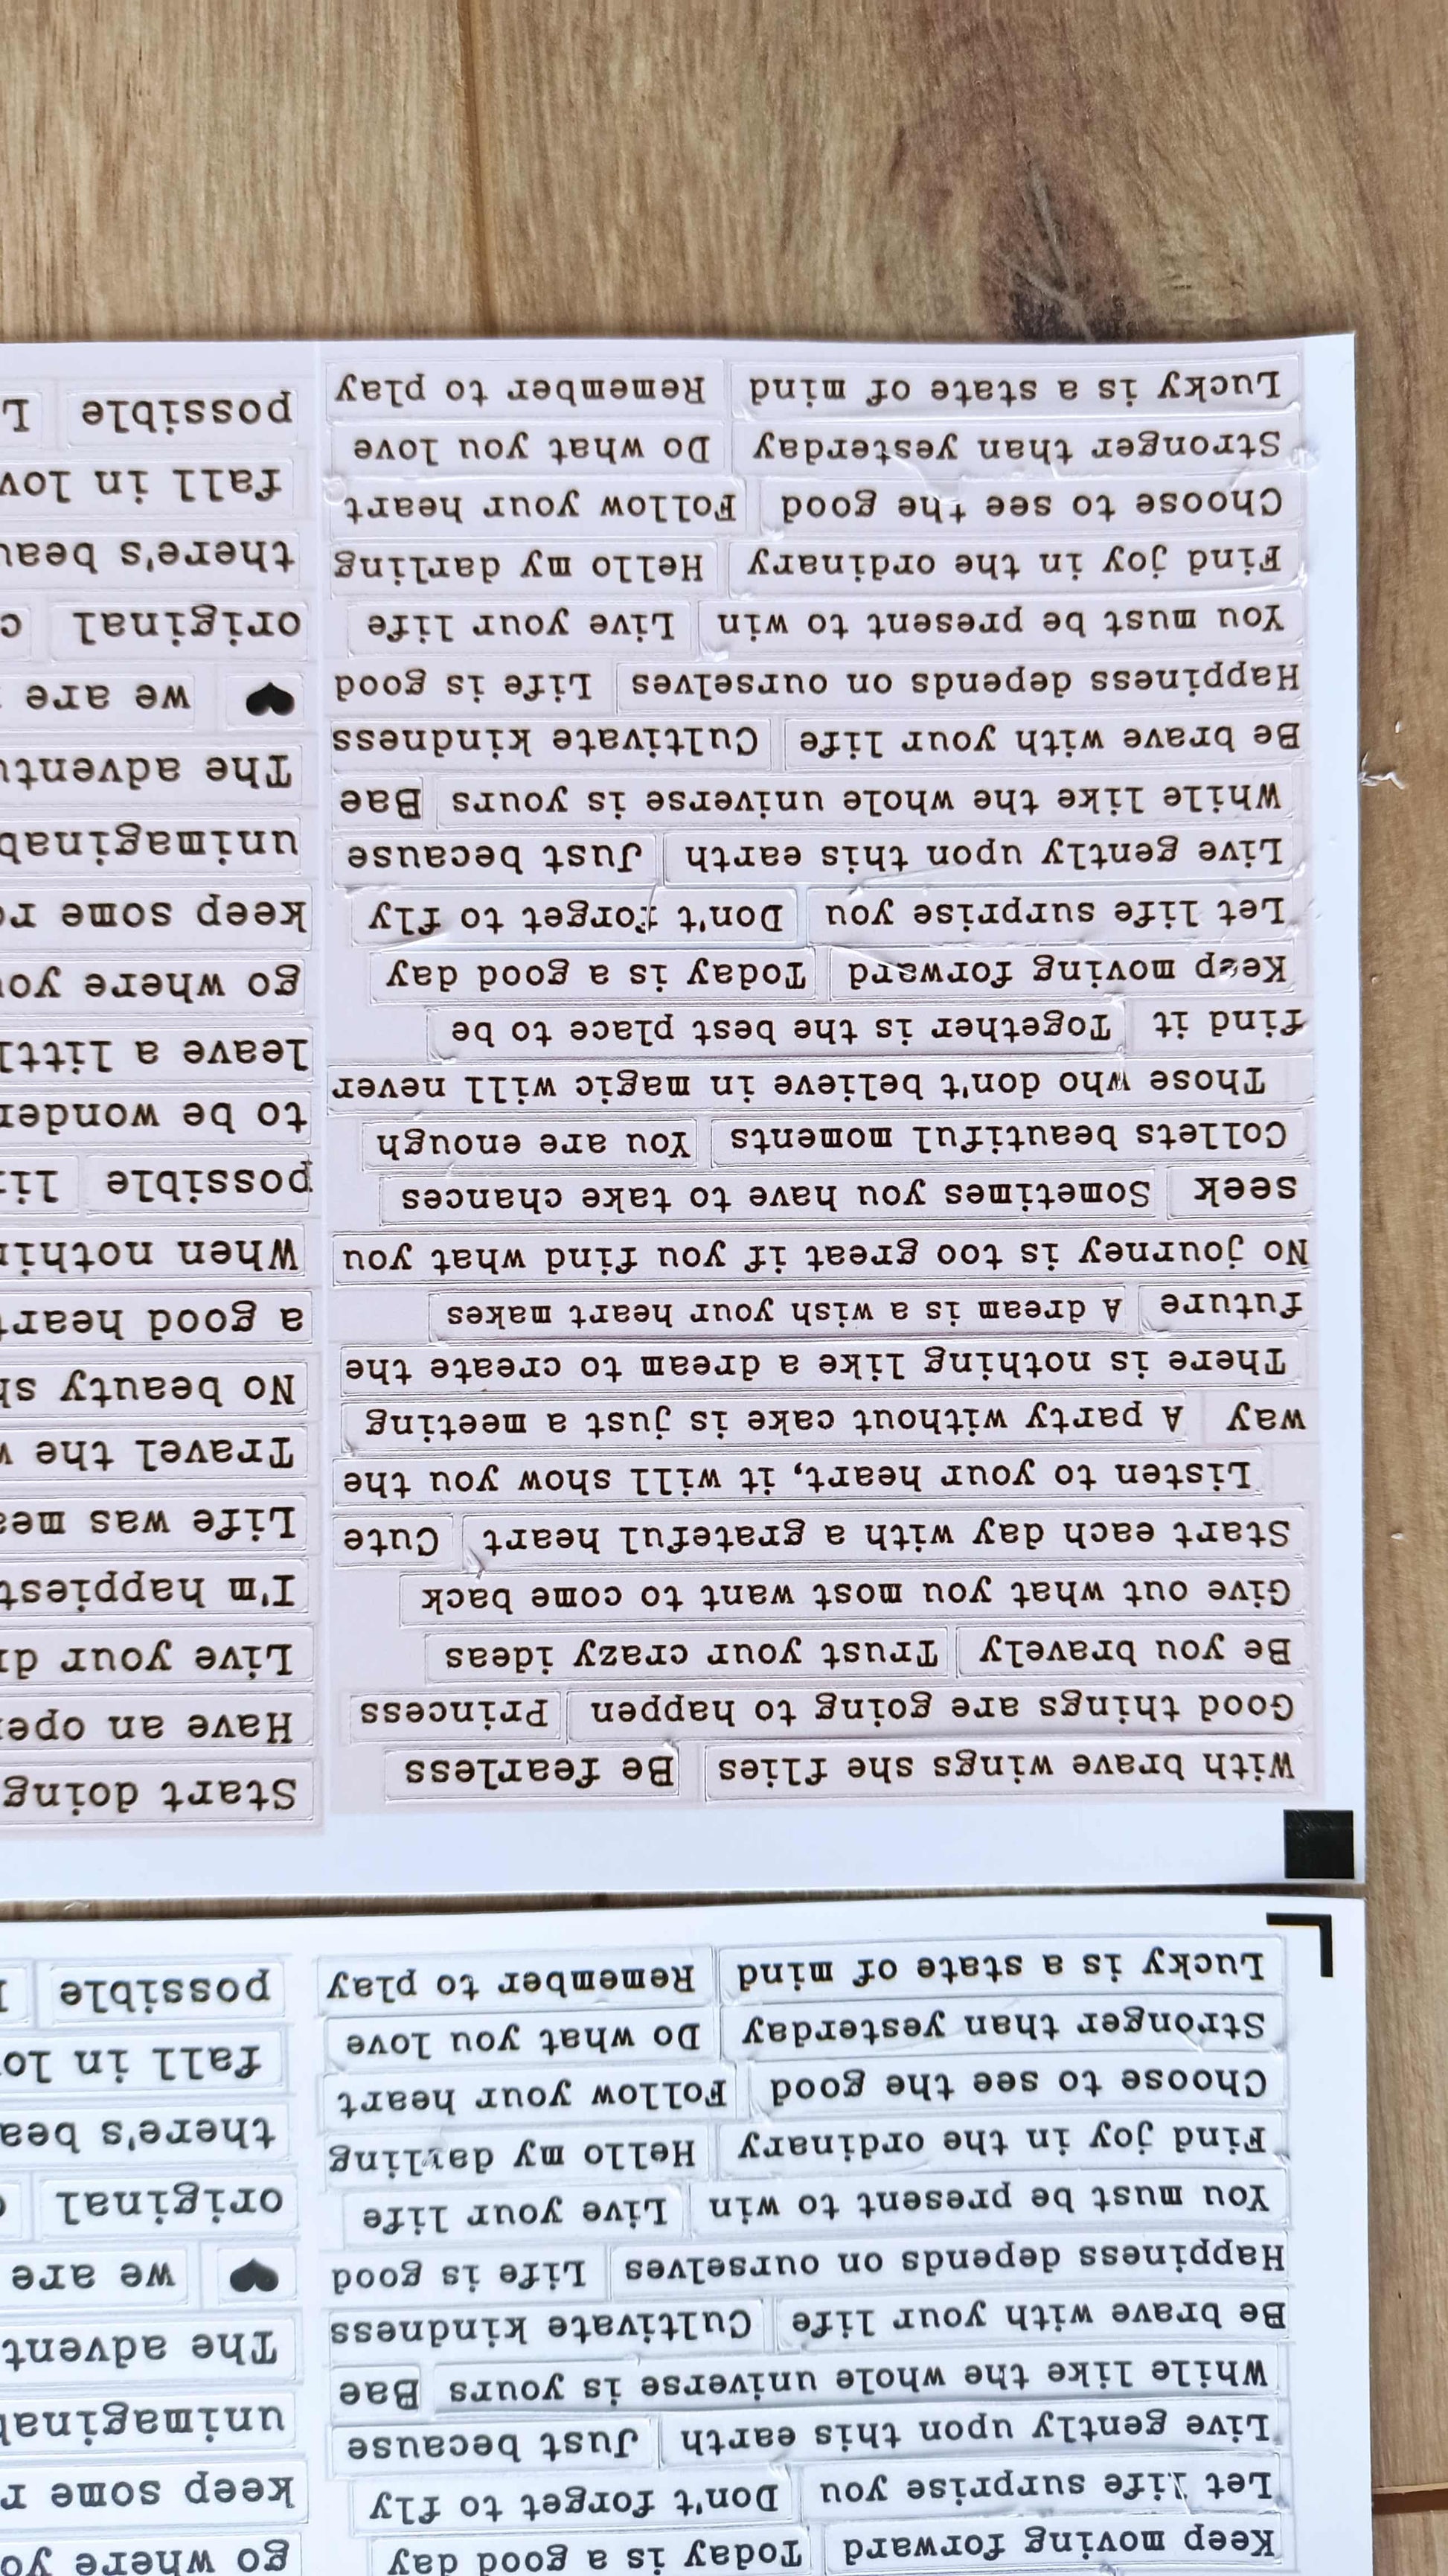 Keep moving forward Today is a good day
Let life surprise you Don't forget to fly
Live gently upon this earth Just because
While like the whole universe is yours Bae
Be brave with your life Cultivate kindness
Happiness depends on ourselves Life is good
You must be present to win Live your life
Find joy in the ordinary Hello my darling
Choose to see the good Follow your heart
Stronger than yesterday Do what you love
Lucky is a state of mind Remember to play
go where
keep some
The
we are
original
there's
fall in
possible
With brave wings she flies Be fearless
Good things are going to happen Princess
Be you bravely Trust your crazy ideas
Give out what you most want to come back
Start each day with a grateful heart Cute
Listen to your heart, it will show you the
way A party without cake is just a meeting
There is nothing like a dream to create the
future A dream is a wish your heart makes
No journey is too great if you find what you
seek Sometimes you have to take chances
Collets beautiful moments You are enough
Those who don't believe in magic will never
find it Together is the best place to be
Keep moving forward Today is a good day
Let life surprise you Don't forget to fly
Live gently upon this earth Just because
While like the whole universe is yours Bae
Be brave with your life Cultivate kindness
Happiness depends on ourselves Life is good
You must be present to win Live your life
Find joy in the ordinary Hello my darling
Choose to see the good Follow your heart
Stronger than yesterday Do what you love
Lucky is a state of mind Remember to play
Start doing
Have an
Live your
I'm
Life was
Travel the
No beauty
a good
When
possible
to be
leave a
go where
keep some
The
we are
original
there's
fall in
possible